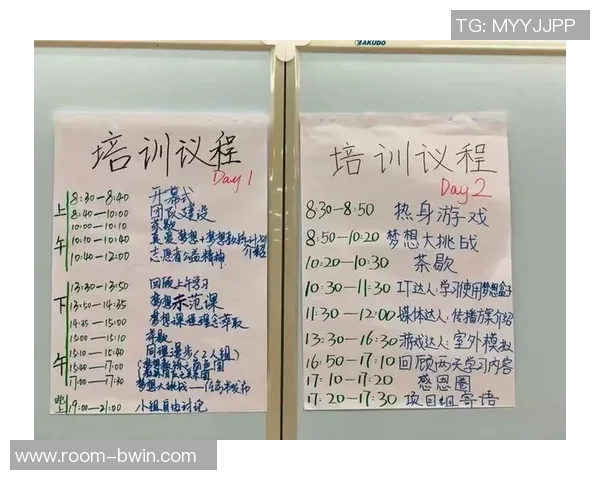 TG: MYYJJPP
AKUDO
培训议程
Day 1
上午
8:30—8:40 开幕式
8:40—10:00 团队建设
10:00—10:10 茶歇
10:10—10:40 真爱梦想+梦想教练计划介绍
10:40—12:00 志愿者公益精神
下午
13:30—13:50 回顾上午学习
13:50—14:35 梦想示范课
14:35—15:00 梦想课程理念萃取
15:00—15:10 茶歇
15:10—15:40 同理漫步(2人组)
15:40—17:00
17:00—17:30 梦想大挑战——任务发布
晚上
19:00—21:00 小组自由讨论
培训议程
Day 2
8:30—8:50 热身游戏
8:50—10:20 梦想大挑战
10:20—10:30 茶歇
10:30—11:30 IT达人:学习使用梦想盒子
11:30—12:00 媒体达人:传播方案介绍
13:30—16:30 游戏达人:室外模拟
16:50—17:10 回顾两天学习内容
17:10—17:20 感恩圈
17:20—17:30 项目组寄语
www.room-bwin.com